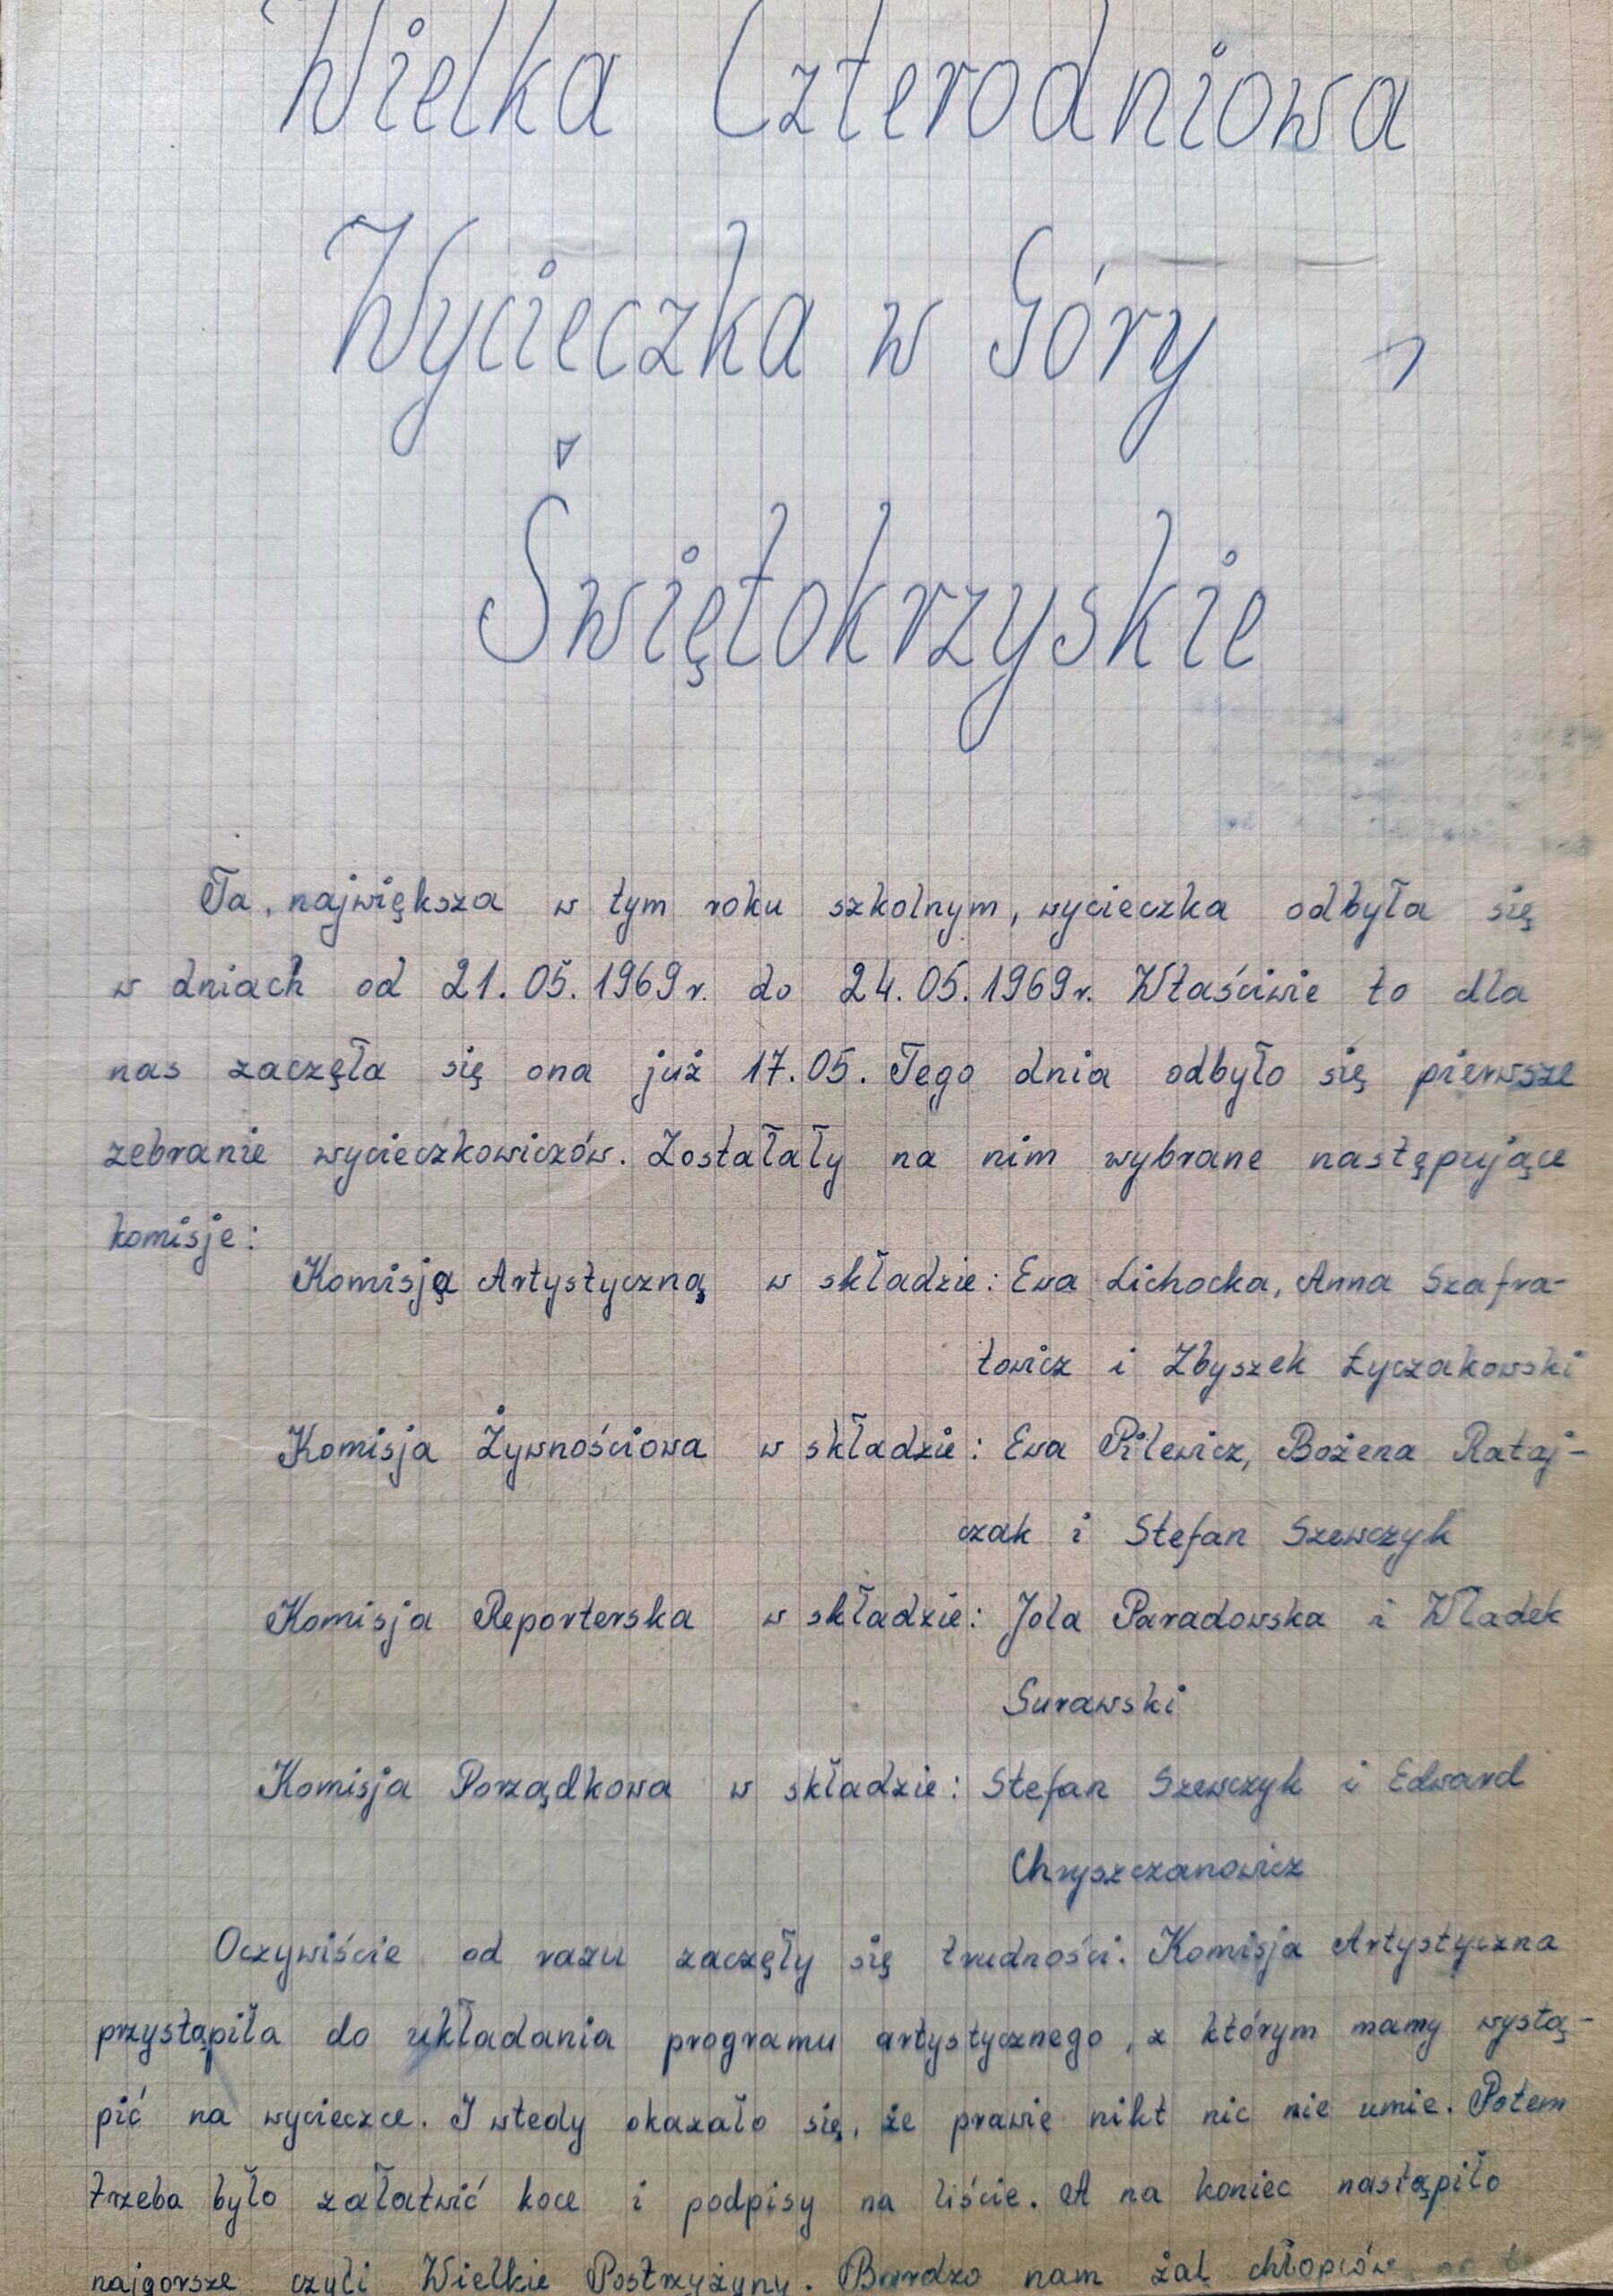 Wielka Czterodniowa
Wycieczka w Góry
Świętokrzyskie
Ta, największa w tym roku szkolnym, wycieczka odbyła się
w dniach od 21.05.1969r. do 24.05.1969r. Właściwie to dla
nas zaczęła się ona już 17.05. Tego dnia odbyło się pierwsze
zebranie wycieczkowiczów. Zostałały na nim wybrane następujące
komisje:
Komisję Artystyczną w składzie: Ewa Lichocka, Anna Szafra-
łowicz i Zbyszek Łyczakowski
Komisja Żywnościowa w składzie: Ewa Pilewicz, Bożena Rataj-
czak i Stefan Szewczyk
Komisja Reporterska w składzie: Jola Paradowska i Władek
Surawski
Komisja Porządkowa w składzie: Stefan Szewczyk i Edward
Chryszczanowicz
Oczywiście od razu zaczęły się trudności. Komisja Artystyczna
przystąpiła do układania programu artystycznego, z którym mamy wystą-
pić na wycieczce. I wtedy okazało się, że prawie nikt nic nie umie. Potem
trzeba było załatwić koce i podpisy na liście. A na koniec nastąpiło
najgorsze czyli Wielkie Postrzyżyny. Bardzo nam żal chłopców